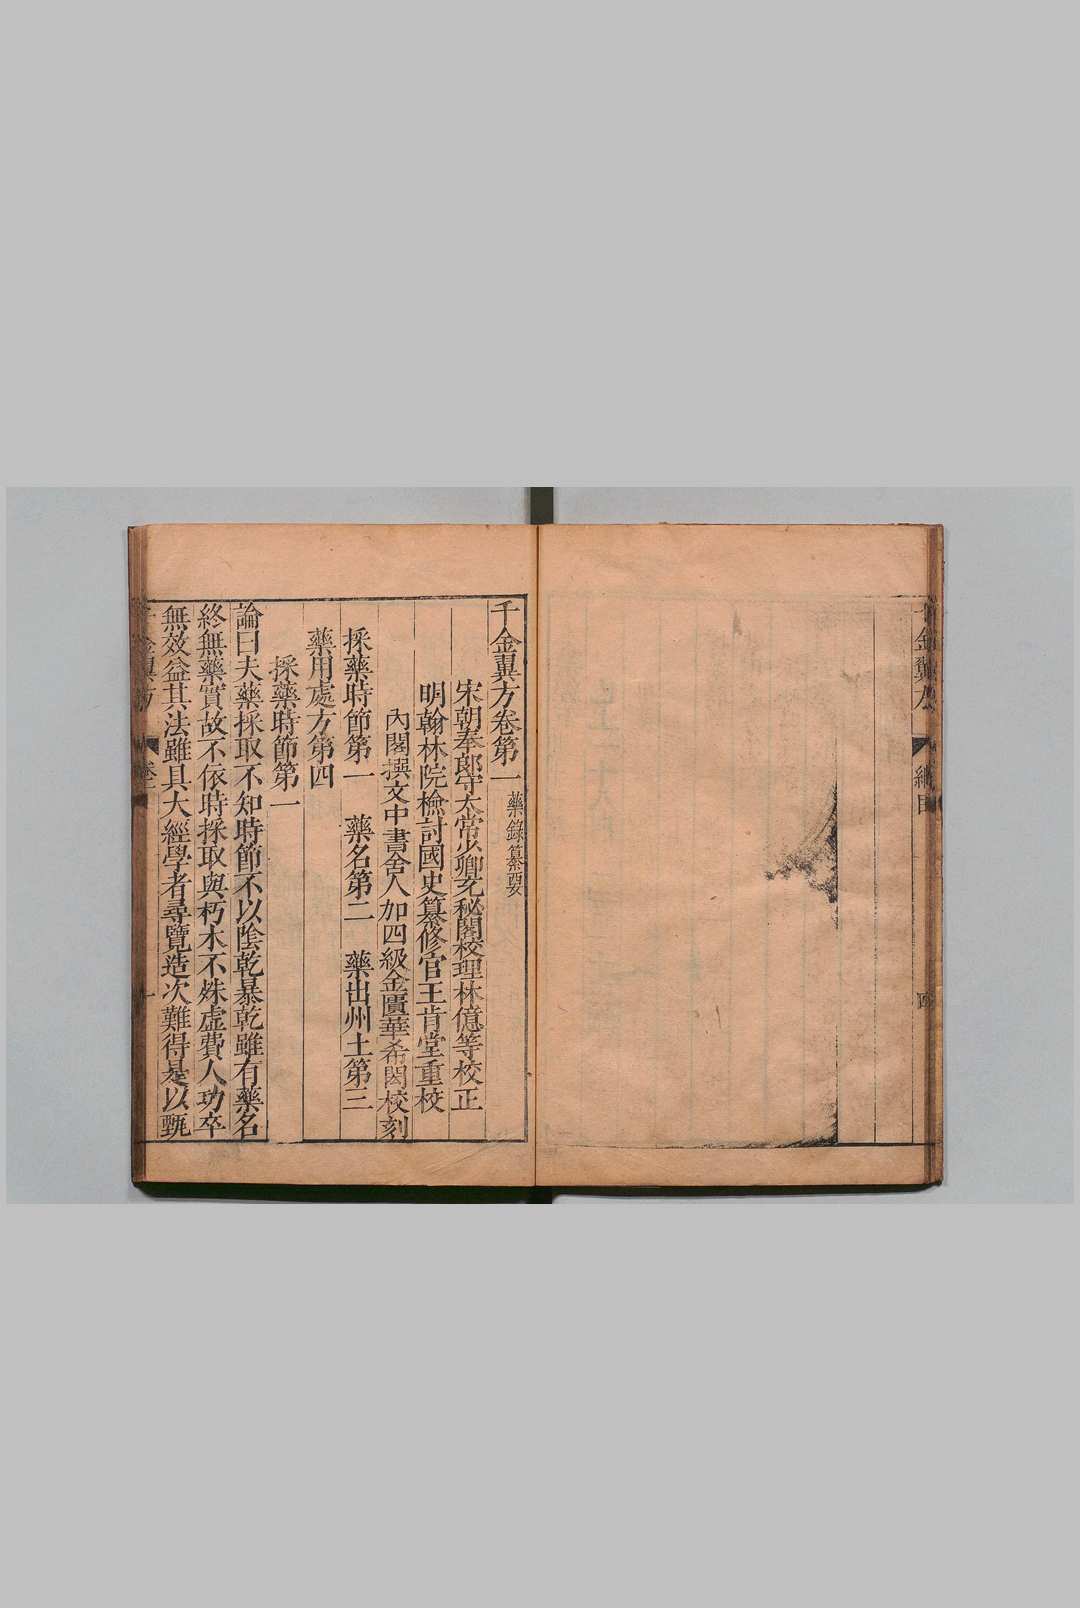 千金翼方 總目 四
千金翼方卷第一 藥錄纂要
宋朝奉郎守太常少卿充秘閣校理林億等校正
明翰林院檢討國史纂修官王肯堂重校
內閣撰文中書舍人加四級金匱華希閎校刻
採藥時節第一 藥名第二 藥出州土第三
藥用處方第四
採藥時節第一
論曰夫藥採取不知時節不以陰乾暴乾雖有藥名
終無藥實故不依時採取與朽木不殊虛費人功卒
無效益其法雖具大經學者尋覽造次難得是以甄
千金翼方 卷一 一